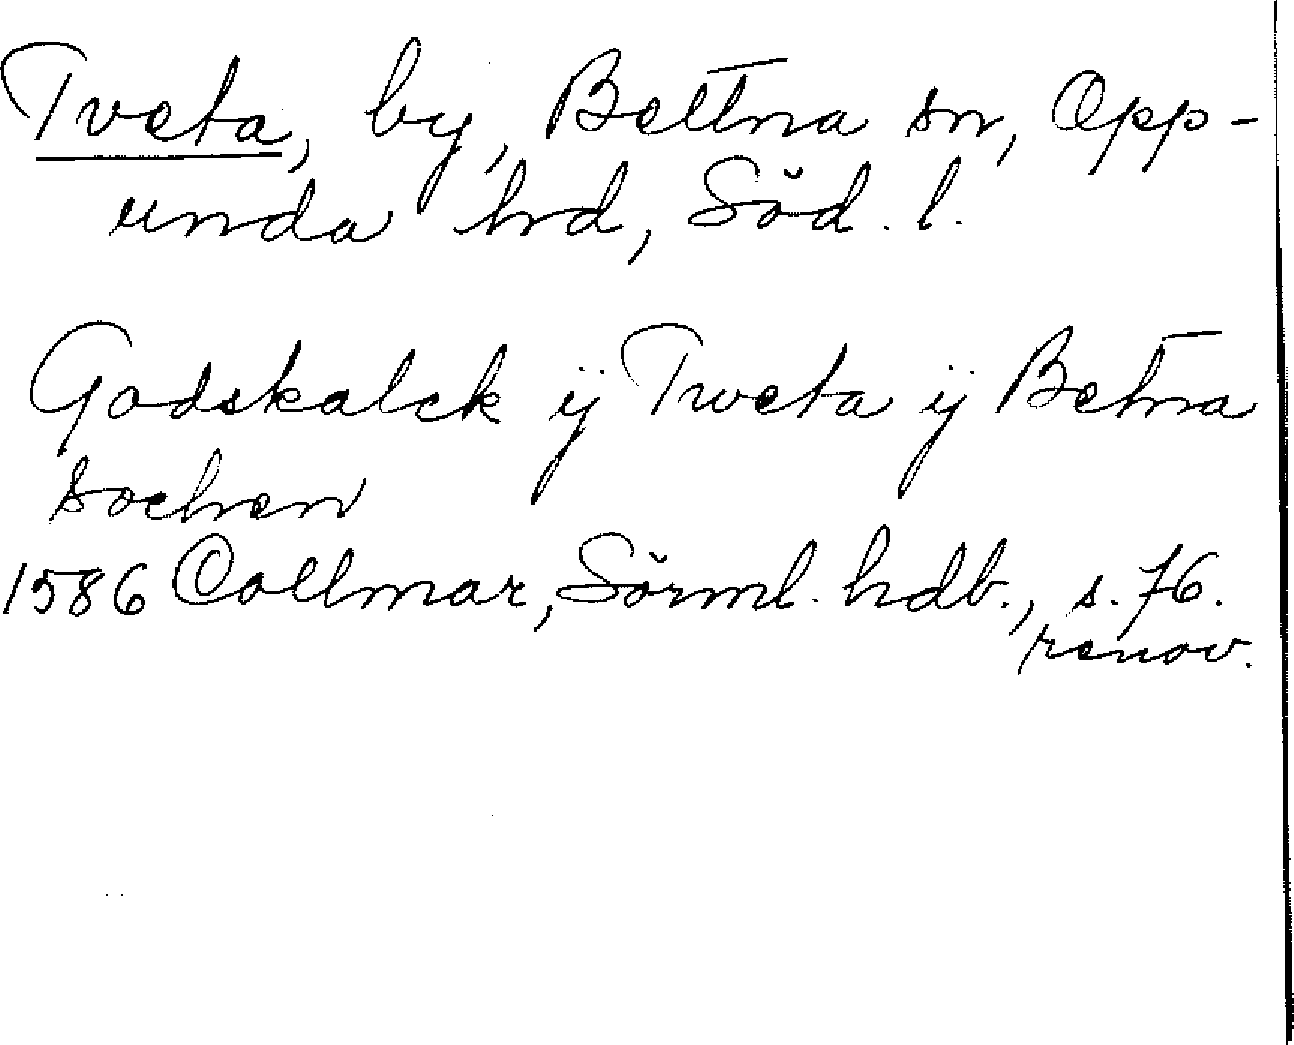 Tveta, by, Bettna sn, Opp-
unda hd, Söd. l.
Godskalck ÿ Tweta ÿ Betna
Sochen
1586 Collmar, Sörml. hdb., s. 76.
renov.